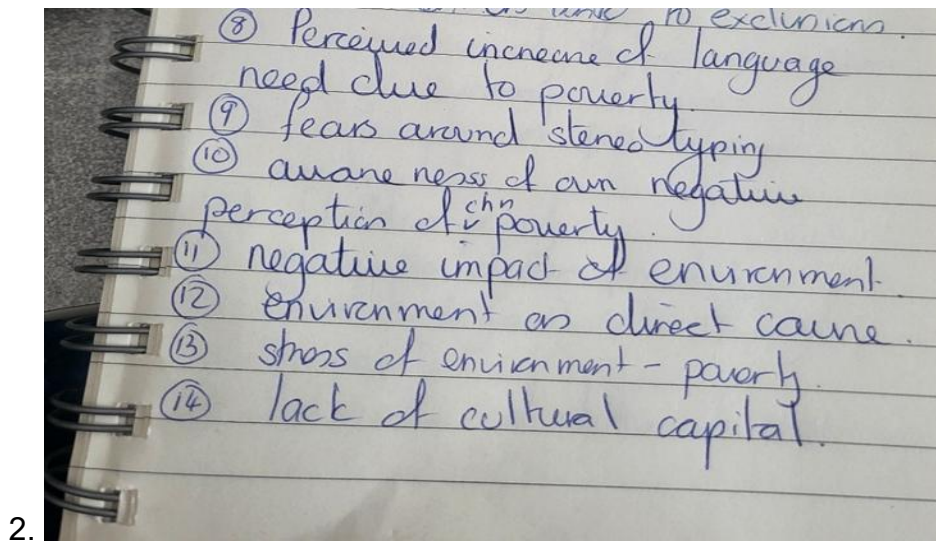 to exclusions.
⑧ Perceived increase of language
need due to poverty.
⑨ fears around stereotyping
⑩ awareness of own negative
perception of chn poverty.
⑪ negative impact of environment.
⑫ environment as direct cause.
⑬ stress of environment - poverty.
⑭ lack of cultural capital.
2.